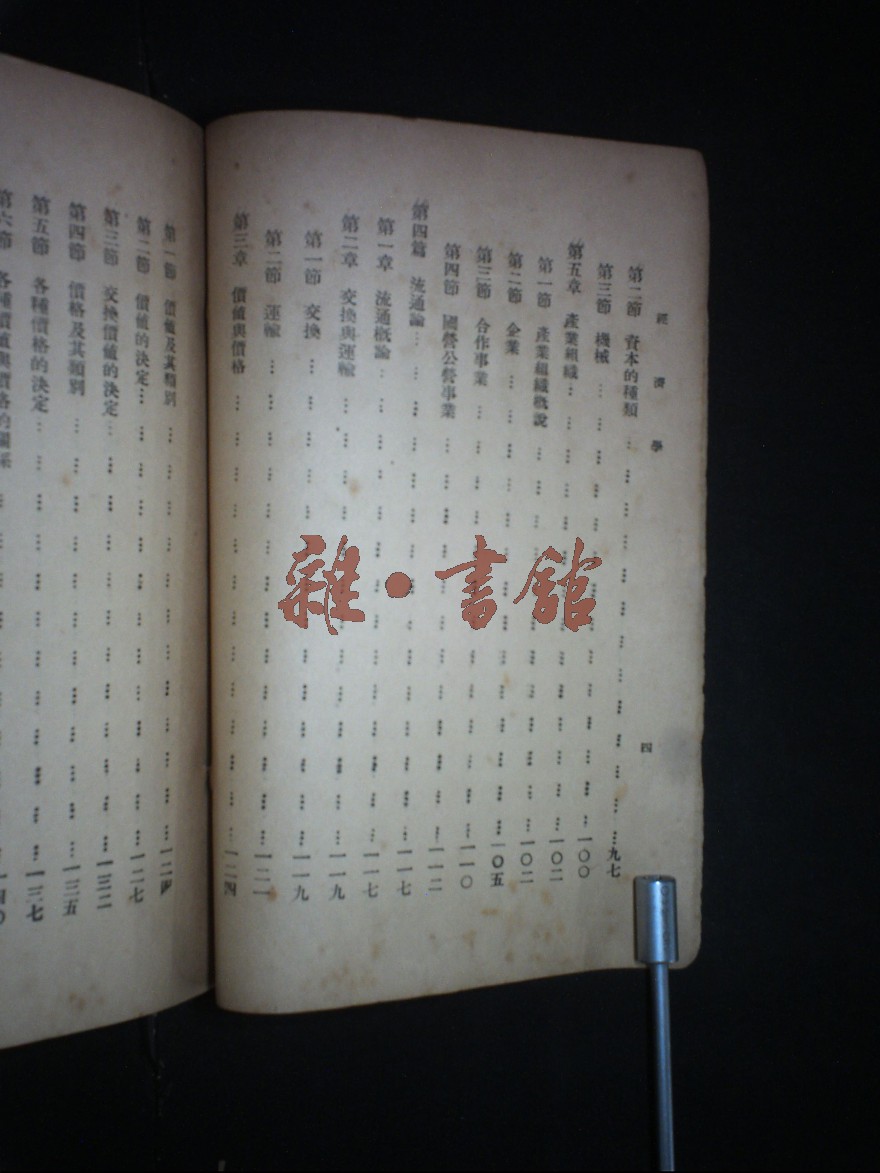 經濟學
四
第二節 資本的種類……九七
第三節 機械……一〇〇
第五章 產業組織……一〇二
第一節 產業組織概說……一〇二
第二節 企業……一〇五
第三節 合作事業……一一〇
第四節 國營公營事業……一一二
第四篇 流通論……一一七
第一章 流通概論……一一七
第二章 交換與運輸……一一九
第一節 交換……一一九
第二節 運輸……一二一
第三章 價值與價格……一二四
第一節 價值及其類別……一二四
第二節 價值的決定……一二七
第三節 交換價值的決定……一三二
第四節 價格及其類別……一三五
第五節 各種價格的決定……一三七
第六節 各種價值與價格的關係……一四〇
雜·書館